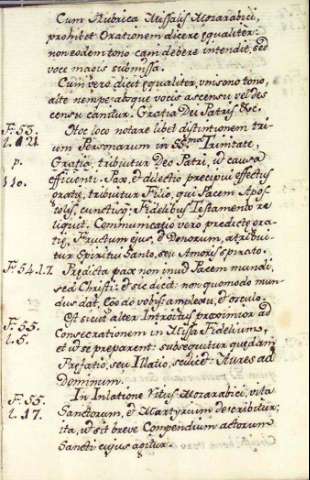 Cum Rubrica Missalis Mozarabici,
prohibet Orationem dicere equaliter:
non eodem tono cani debere intendit, sed
voce magis submissa.
Cum vero dicit equaliter, unisono tono,
alte nempe absque vocis ascensu vel des-
censu canitur. Gratia Dei Patris &c.
F. 53. Hoc loco notare libet distintionem tri-
l. 21 um Personarum in SSma Trinitate,
p. Gratia, tribuitur Deo Patri, ut causa
110. efficienti. Pax, et dilectio precipui effectus
gratie, tribuitur Filio, qui Pacem Apos-
tolis, cunctisq; Fidelibus Testamento re-
liquit. Communicatio vero predicte gra-
tie, Fructum ejus, et Donorum, atribui-
tur Spiritui Santo, seu Amori spirato.
F. 54. l. 7. Predicta pax non inquid Pacem mundi,
sed Christi et sic dicit: non quomodo mun-
dus dat, Ego do vobis amplexu, et osculo.
Et sicut alter Introitus proximior ad
F. 55. Consecrationem in Missa Fidelium,
l. 5. et ut se preparent: subsecuitur quedam
Prefatio, seu Illatio, se dicit: Aures ad
Dominum.
F. 55. In Inlatione Ritus Mozarabici, vita
l. 17. Sanctorum, et Martyrum describitur;
ita, ut sit breve Compendium actorum
Sancti cujus agitur.